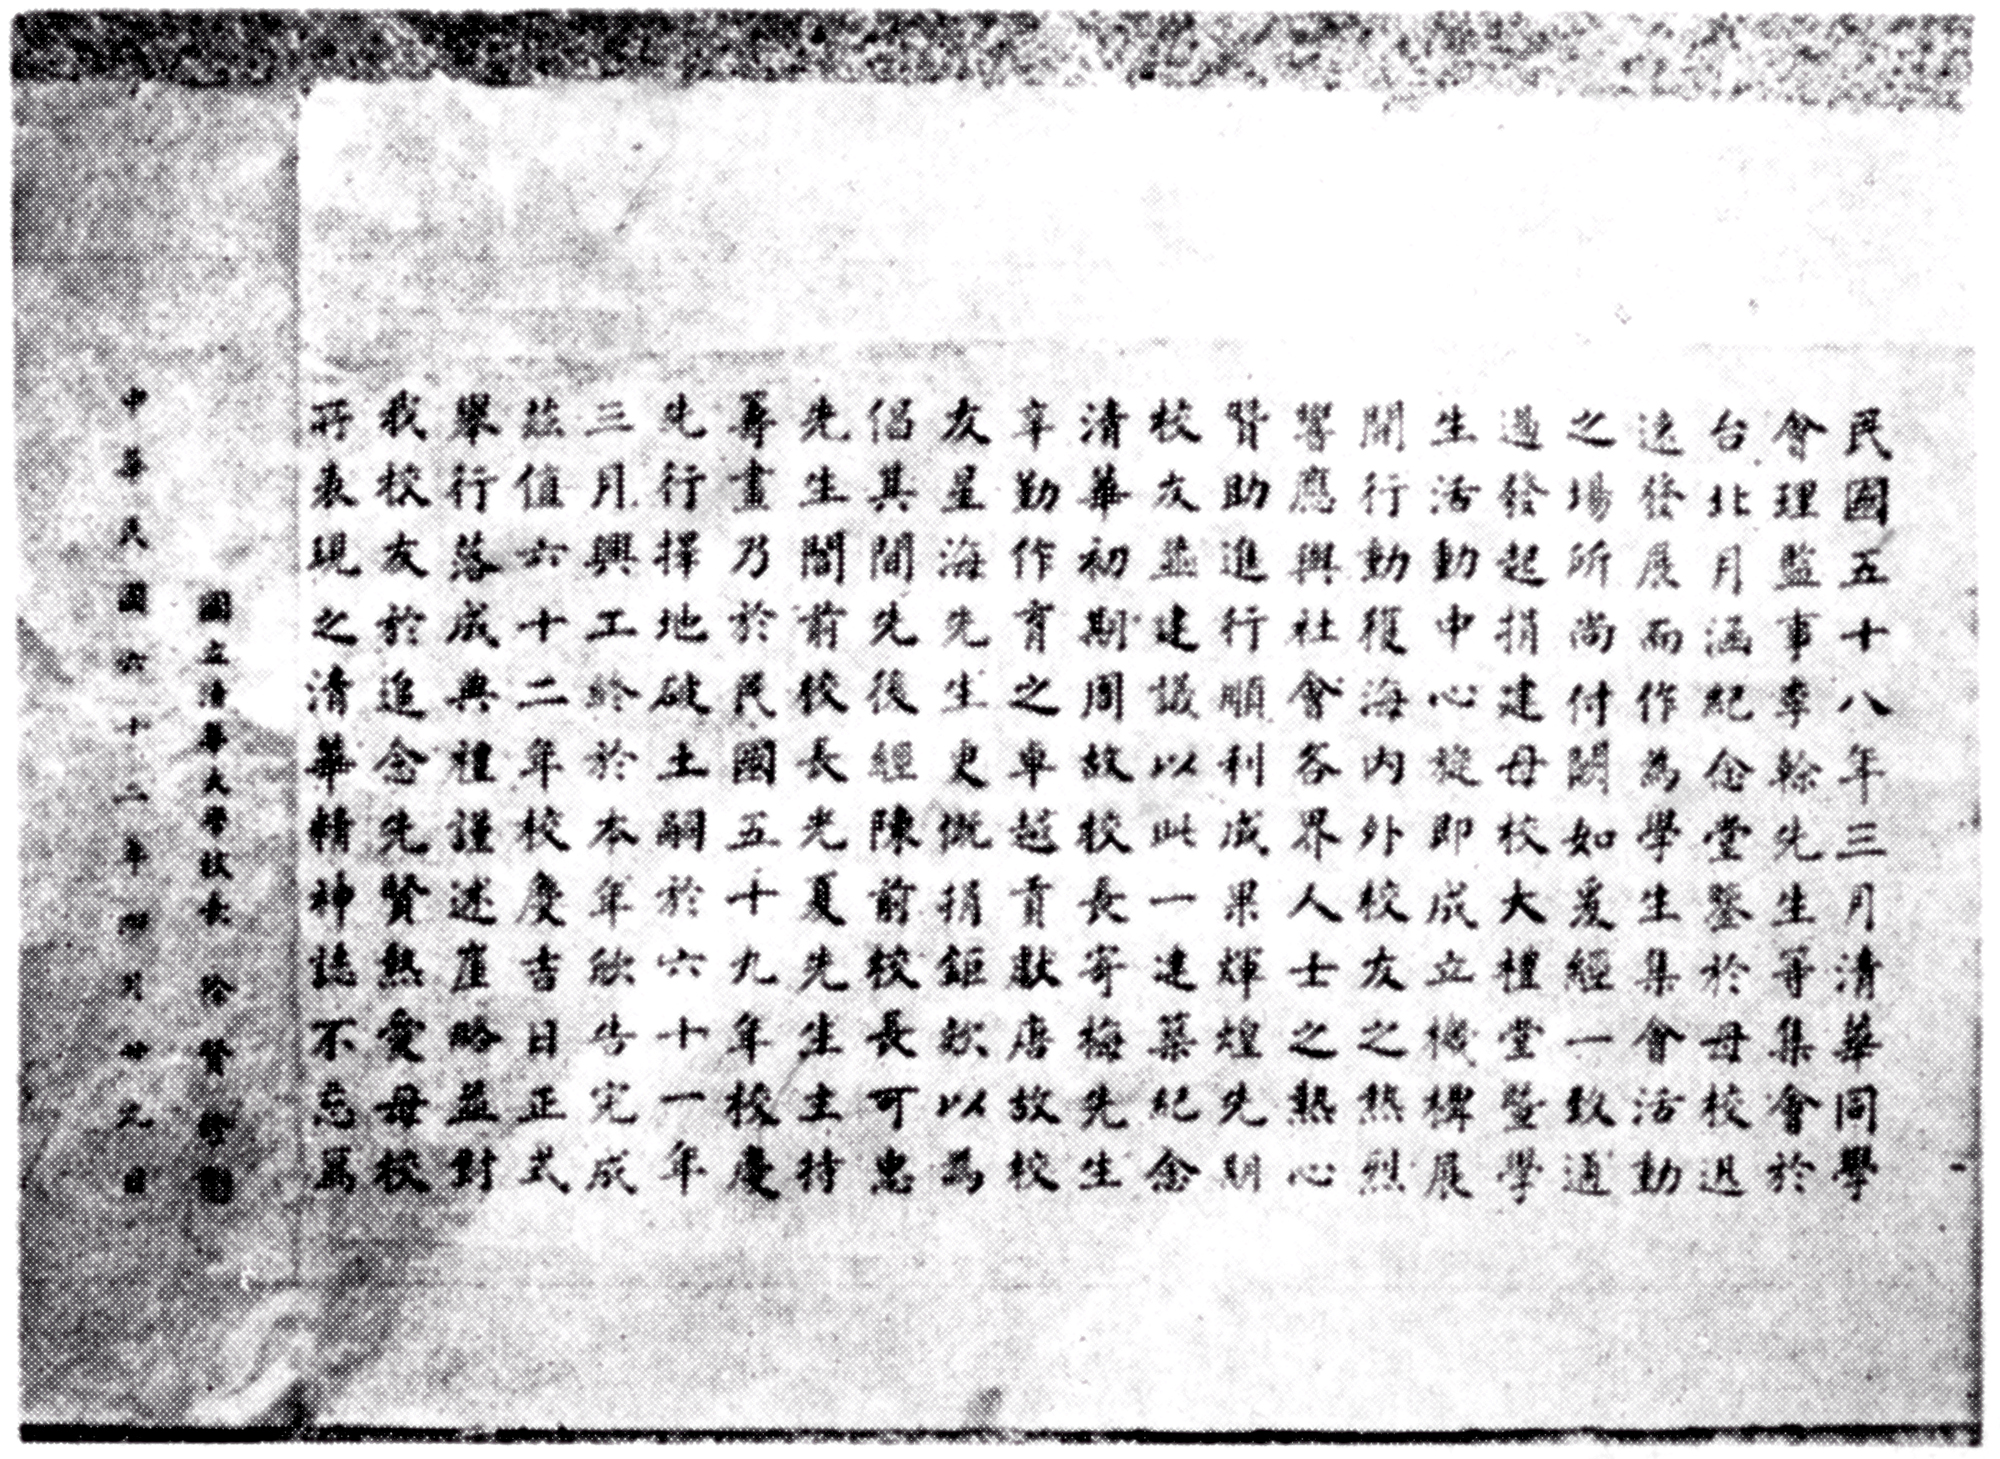 民國五十八年三月清華同學
會理監事李榦先生等集會於
台北月涵紀念堂鑒於母校迅
速發展而作為學生集會活動
之場所尚付闕如爰經一致通
過發起捐建母校大禮堂暨學
生活動中心旋即成立機構展
開行動獲海內外校友之熱烈
響應與社會各界人士之熱心
贊助進行順利成果輝煌先期
校友並建議以此一建築紀念
清華初期周故校長寄梅先生
辛勤作育之卓越貢獻唐故校
友星海先生更慨捐鉅款以為
倡其間先後經陳前校長可忠
先生閻前校長光夏先生主持
籌畫乃於民國五十九年校慶
先行擇地破土嗣於六十一年
三月興工終於本年欣告完成
茲值六十二年校慶吉日正式
舉行落成典禮謹述崖略益對
我校友於追念先賢熱愛母校
所表現之清華精神誌不忘焉
國立清華大學校長 徐賢修
中華民國六十二年四月廿九日